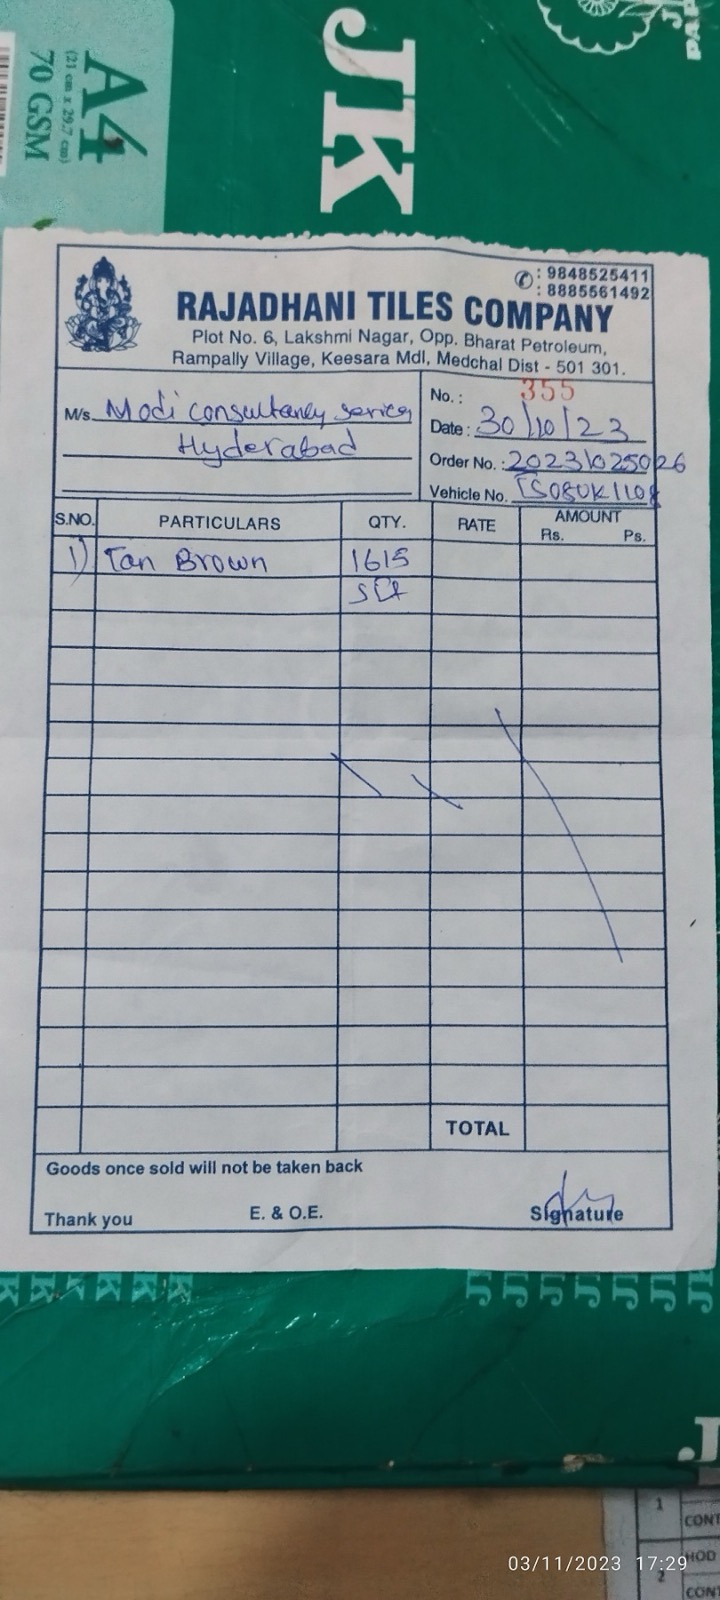 A4
(21 cm x 29.7 cm)
70 GSM
JK
J
PAP
: 9848525411
: 8885561492
RAJADHANI TILES COMPANY
Plot No. 6, Lakshmi Nagar, Opp. Bharat Petroleum,
Rampally Village, Keesara Mdl, Medchal Dist - 501 301.
M/s. Modi consultancy
Hyderabad
No. : 355
Date : 30/10/23
Order No. : 20231025026
Vehicle No.
S.NO. PARTICULARS QTY. RATE AMOUNT
Rs. Ps.
1) Tan Brown 1615
Sft
TOTAL
Goods once sold will not be taken back
Thank you E. & O.E. Signature
JK JK JK JK JK
J
1
CONT
HOD
2
CONT
03/11/2023 17:29